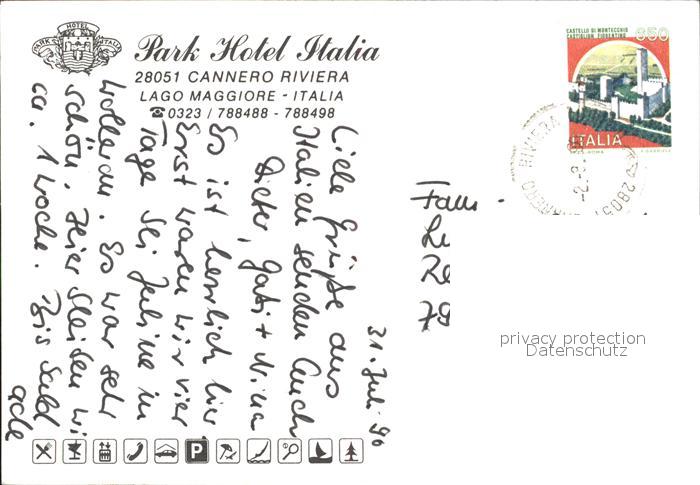 HOTEL
PARK ITALIA
Park Hotel Italia
28051 CANNERO RIVIERA
LAGO MAGGIORE - ITALIA
☎0323 / 788488 - 788498
31. Juli 90
Liebe Grüße aus
Italien senden Euch
Dieter, Gabi + Nina
Es ist herrlich hier
Erst waren wir vier
Tage bei Juliane in
Wollerau. Es war sehr
schön. Hier bleiben wi
ca. 1 Woche. Bis bald
ade
CASTELLO DI MONTECCHIO
CASTIGLION FIORENTINO
650
ITALIA
28051
RIVIERA
-2.-8.
Fam.
79
P
privacy protection
Datenschutz